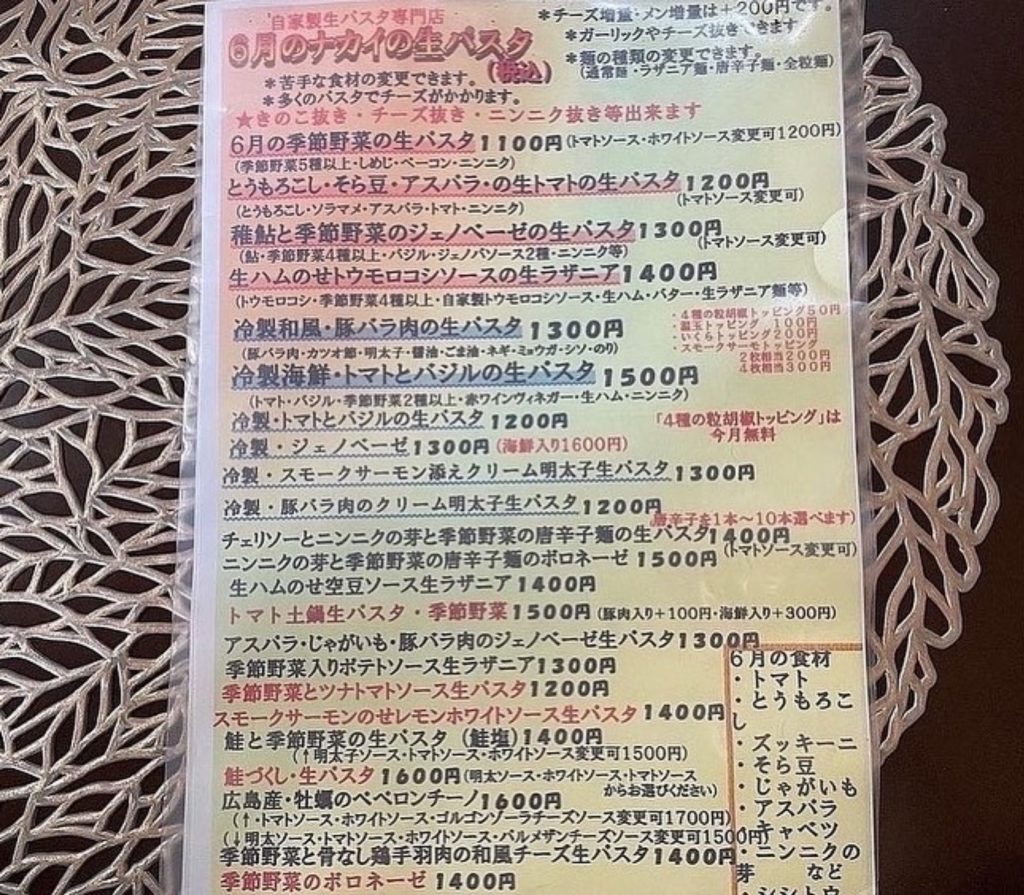 自家製生パスタ専門店
6月のナカイの生パスタ
(税込)
*チーズ増量・メン増量は+200円です。
*ガーリックやチーズ抜きできます
*麺の種類の変更できます。
(通常麺・ラザニア麺・唐辛子麺・全粒麺)
*苦手な食材の変更できます。
*多くのパスタでチーズがかかります。
★きのこ抜き・チーズ抜き・ニンニク抜き等出来ます
6月の季節野菜の生パスタ1100円(トマトソース・ホワイトソース変更可1200円)
(季節野菜5種以上・しめじ・ベーコン・ニンニク)
とうもろこし・そら豆・アスパラ・の生トマトの生パスタ1200円
(トマトソース変更可)
(とうもろこし・ソラマメ・アスパラ・トマト・ニンニク)
稚鮎と季節野菜のジェノベーゼの生パスタ1300円
(トマトソース変更可)
(鮎・季節野菜4種以上・バジル・ジェノバソース2種・ニンニク等)
生ハムのせトウモロコシソースの生ラザニア1400円
(トウモロコシ・季節野菜4種以上・自家製トウモロコシソース・生ハム・バター・生ラザニア麺等)
冷製和風・豚バラ肉の生パスタ1300円
(豚バラ肉・カツオ節・明太子・醤油・ごま油・ネギ・ミョウガ・シソ・のり)
・4種の粒胡椒トッピング50円
・温玉トッピング 100円
・いくらトッピング200円
・スモークサーモトッピング
2枚相当200円
4枚相当300円
冷製海鮮・トマトとバジルの生パスタ1500円
(トマト・バジル・季節野菜2種以上・赤ワインヴィネガー・生ハム・ニンニク)
冷製・トマトとバジルの生パスタ1200円
「4種の粒胡椒トッピング」は
今月無料
冷製・ジェノベーゼ1300円(海鮮入り1600円)
冷製・スモークサーモン添えクリーム明太子生パスタ1300円
冷製・豚バラ肉のクリーム明太子生パスタ1200円
(唐辛子を1本～10本選べます)
チェリソーとニンニクの芽と季節野菜の唐辛子麺の生パスタ1400円
(トマトソース変更可)
ニンニクの芽と季節野菜の唐辛子麺のボロネーゼ1500円
生ハムのせ空豆ソース生ラザニア1400円
トマト土鍋生パスタ・季節野菜1500円(豚肉入り+100円・海鮮入り+300円)
アスパラ・じゃがいも・豚バラ肉のジェノベーゼ生パスタ1300円
季節野菜入りポテトソース生ラザニア1300円
季節野菜とツナトマトソース生パスタ1200円
スモークサーモンのせレモンホワイトソース生パスタ1400円
鮭と季節野菜の生パスタ(鮭塩)1400円
(↑明太子ソース・トマトソース・ホワイトソース変更可1500円)
鮭づくし・生パスタ1600円(明太ソース・ホワイトソース・トマトソース
からお選びください)
広島産・牡蠣のペペロンチーノ1600円
(↑・トマトソース・ホワイトソース・ゴルゴンゾーラチーズソース変更可1700円)
(↓明太ソース・トマトソース・ホワイトソース・パルメザンチーズソース変更可1500円)
季節野菜と骨なし鶏手羽肉の和風チーズ生パスタ1400円
季節野菜のボロネーゼ1400円
6月の食材
・トマト
・とうもろこ
し
・ズッキーニ
・そら豆
・じゃがいも
・アスパラ
・キャベツ
・ニンニクの
芽 など
・シシトウ